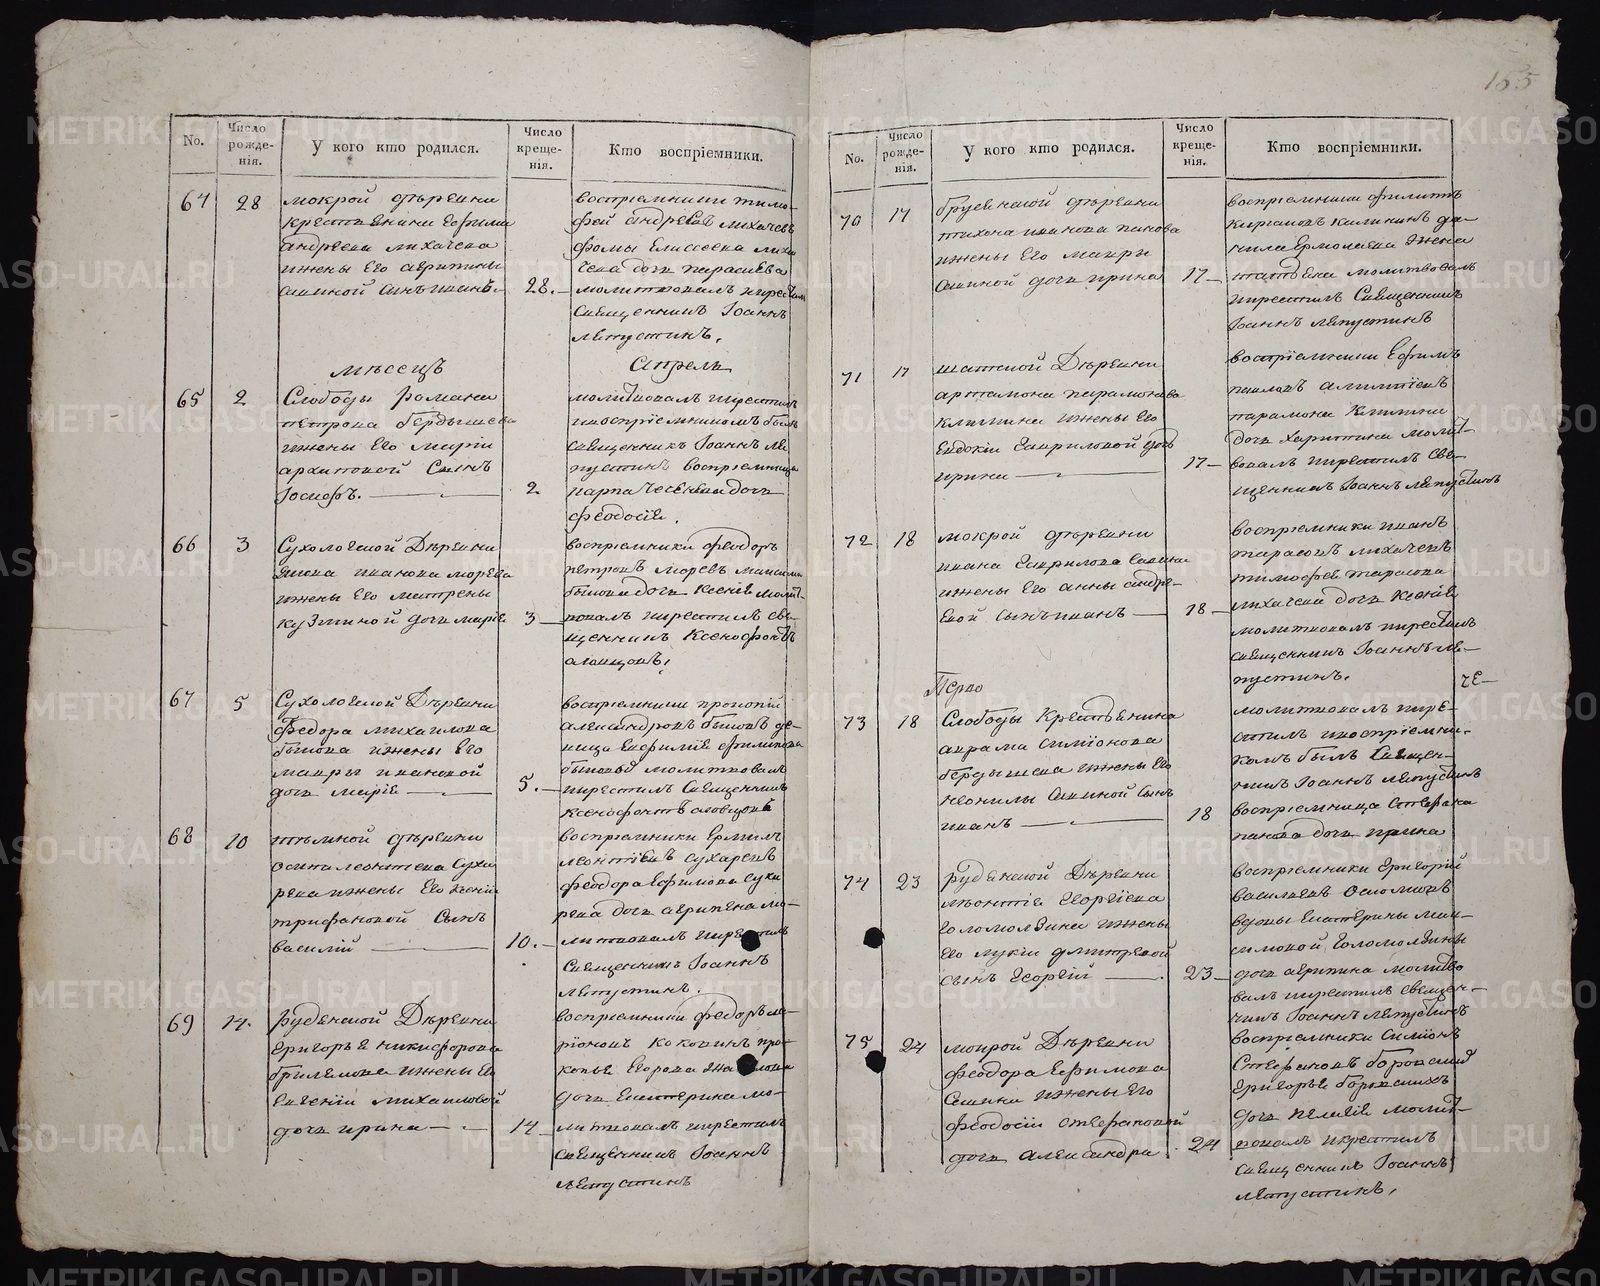 165
No.
Число рожде- нія.
У кого кто родился.
Число креще- нія.
Кто воспріемники.
64
28
мокрой деревни
крестьянина Ефима
андреева лихачева
ижены его агрипины
савиной сынъ иванъ
28.
воспріемники тимо-
фей андреевъ лихачевъ
фомы Елисеева лиха
чева дочь параскева
молитвовалъ икрестилъ
священникъ Іоаннъ
лепустинъ.
мѣсецъ
Апрель
65
2
Слободы романа
петрова бердышева
ижены его маріи
архиповой Сынъ
Іосифъ.
2
молитвовалъ икрестилъ
ивоспріемникомъ былъ
священникъ Іоаннъ ле
пустинъ воспріемница
дочь
феодосіе.
66
3
Сухологской Деревни
ивана иванова морева
ижены его матрены
кузминой дочь маріе
3
воспріемники феодоръ
петровъ моревъ максима
быкова дочь Ксеніе молит-
вовалъ икрестилъ свя-
щенникъ Ксенофонтъ
словцовъ.
67
5
Сухологской Деревни
федора михаилова
быкова ижены его
макры ивановой
дочь маріе
5.
воспріемники прокопій
александровъ быковъ де-
вица Евфиміе филипова
быкова молитвовалъ
икрестилъ священникъ
ксенофонтъ словцовъ
68
10
темной деревни
осипа леонтева суха
рева ижены его ксеніи
трифановой сынъ
василій
10.
воспріемники Ермилъ
леонтіевъ сухаревъ
феодора Ефимова суха
рева дочь агрипена мо-
литвовалъ икрестилъ
священникъ Іоаннъ
лепустинъ.
69
14.
рудянской Деревни
григорья никифорова
брилякова ижены его
Евгеніи михаиловой
дочь ирина
14
воспріемники федоръ ла-
ріоновъ коковинъ про-
копья Егорова
дочь Екатерина мо-
литвовалъ икрестилъ
священникъ Іоаннъ
лепустинъ
No.
Число рожде- нія.
У кого кто родился.
Число креще- нія.
Кто воспріемники.
70
17
брусянской деревни
тихона иванова панова
ижены его макры
савиной дочь ирина
17
воспріемники филипъ
карповъ калининъ да-
нила Ермолаева жена
татьяна молитвовалъ
икрестилъ Священникъ
Іоаннъ лепустинъ
71
17
шатской Деревни
артамона парамонова
клинина ижены его
Евдокіи гавриловой дочь
ирина
17
воспріемники Ефимъ
павловъ алимпіевъ
парамона клинина
дочь харитина молит-
вовалъ икрестилъ свя-
щенникъ Іоаннъ лепустинъ
72
18
мокрой деревни
ивана гаврилова савина
ижены его анны андре-
евой сынъ иванъ
18
воспріемники иванъ
тарасовъ лихачевъ
тимофея тарасова
лихачева дочь ксеніе
молитвовалъ икрестилъ
священникъ Іоаннъ ле-
пустинъ.
73
18
Слободы Крестьянина
аврама симіонова
бердышева ижены его
неонилы савиной сынъ
иванъ
18
молитвовалъ икре-
стилъ ивоспріемни-
комъ былъ священ-
никъ Іоаннъ лепустинъ
воспріемница стефана
панова дочь ирина
74
23
рудянской Деревни
леонтіе георгіева
голомолзина ижены
его лукіи дмитревой
сынъ георгій
23
воспріемники григорій
васильевъ осломовъ
вдовы Екатерины мак-
симовой голомолзины
дочь агрипина молитво
валъ икрестилъ священ-
никъ Іоаннъ лепустинъ
75
24
мокрой Деревни
феодора Ефимова
Савина ижены его
феодосіи стефановой
дочь александра
24
воспріемники симіонъ
стефановъ боровскій
григорья боровскихъ
дочь пелагіе молит-
вовалъ икрестилъ
священникъ Іоаннъ
лепустинъ.
METRIKI.GASO-URAL.RU